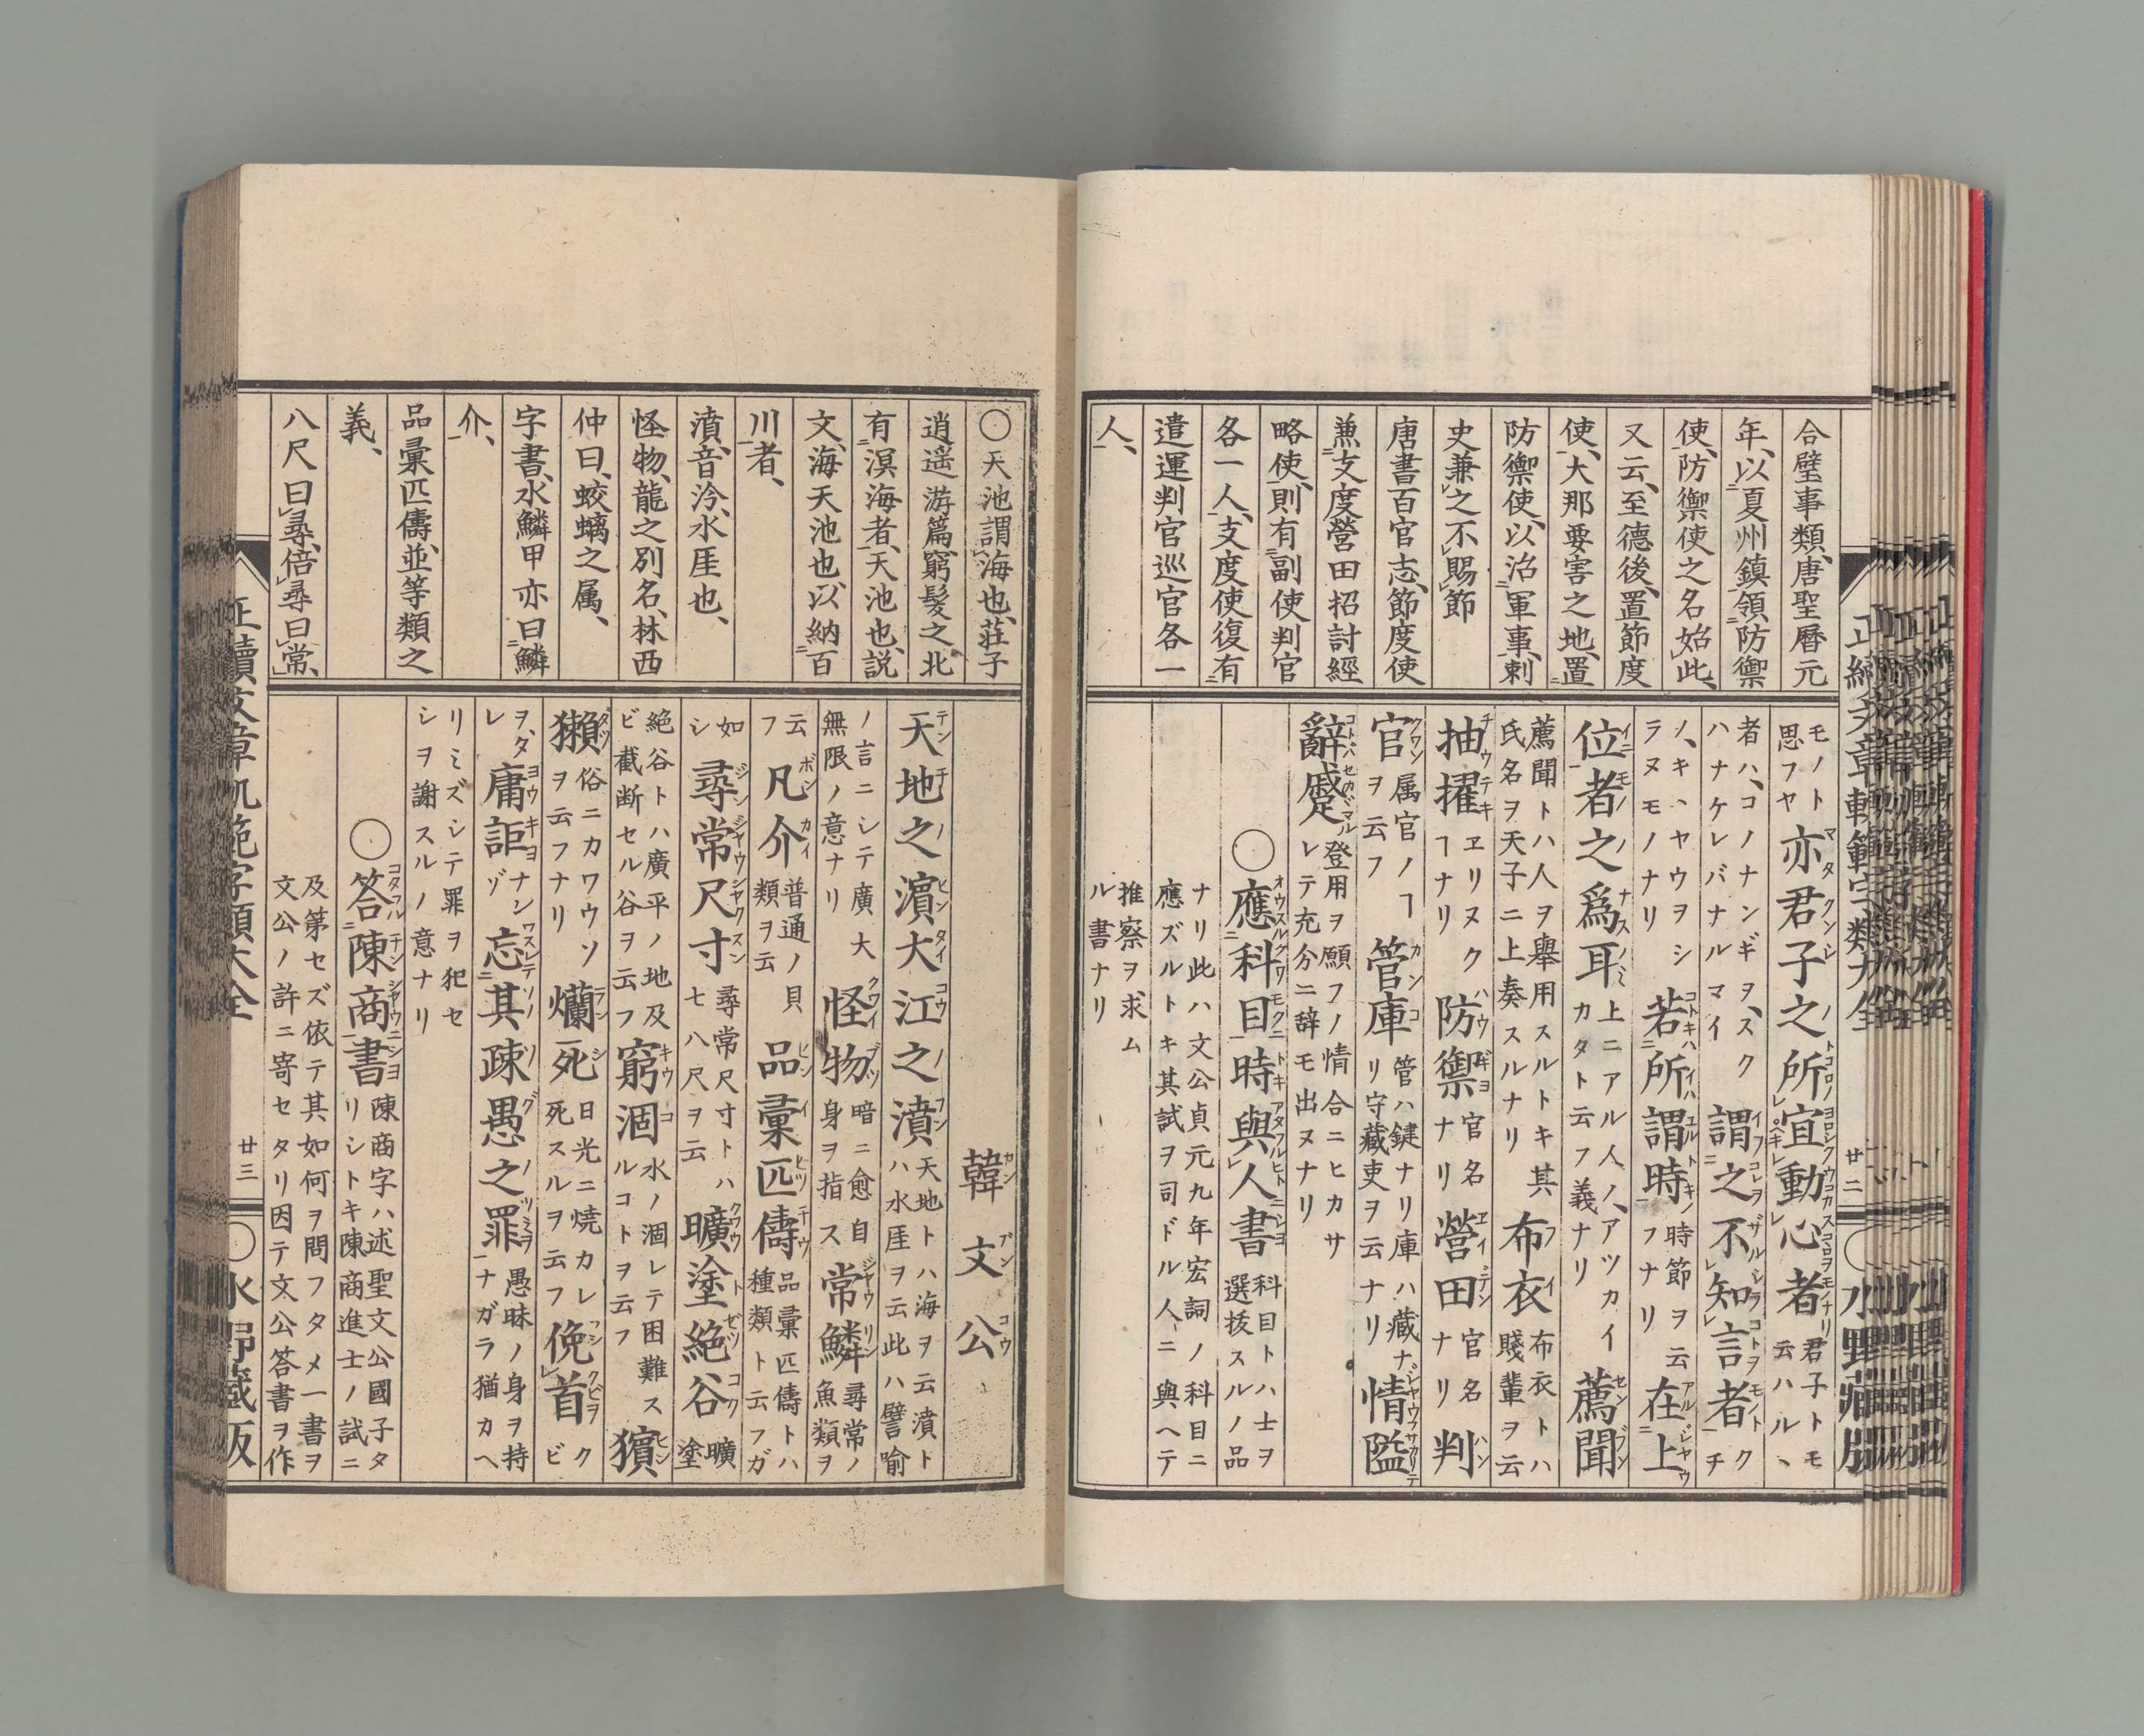 合璧事類、唐聖曆元
年、以夏州鎮領防禦
使、防禦使之名始此、
又云、至德後、置節度
使、大那要害之地、置
防禦使、以治軍事、刺
史兼之不賜節
唐書百官志、節度使
兼支度營田招討經
略使、則有副使判官
各一人、支度使復有
遣運判官巡官各一
人、
モノト思フヤ 亦君子之所宜動心者 君子トモ云ハルヽ
者ハ、コノナンギヲ、スクハナケレバナルマイ 謂之不知言者 クチ
ノ、キヽヤウヲシラヌモノナリ 若所謂時 時節ヲ云フナリ 在上
位者之爲耳 上ニアル人ノ、アツカイカタト云フ義ナリ 薦聞
薦聞トハ人ヲ舉用スルトキ其氏名ヲ天子ニ上奏スルナリ 布衣 布衣トハ賤輩ヲ云
抽擢 ヱリヌクヿナリ 防禦 官名ナリ 營田 官名ナリ 判
官 属官ノヿヲ云フ 管庫 管ハ鍵ナリ庫ハ藏ナリ守藏吏ヲ云ナリ 情隘
辭蹙 登用ヲ願フノ情合ニヒカサレテ充分ニ辞モ出ヌナリ
〇應科目時與人書 科目トハ士ヲ選抜スルノ品
ナリ此ハ文公貞元九年宏詞ノ科目ニ應ズルトキ其試ヲ司ドル人ニ與ヘテ
推察ヲ求ムル書ナリ
廿二
〇天池謂海也、莊子
逍遥游篇、窮髪之北
有溟海者、天池也、説
文、海天池也、以納百
川者、
濆、音汾、水厓也、
怪物、龍之別名、林西
仲曰、蛟螭之属、
字書、水鱗甲亦曰鱗
介、
品彙匹儔、並等類之
義、
八尺曰尋、倍尋曰常、
韓文公
天地之濵大江之濆 天地トハ海ヲ云濆トハ水厓ヲ云此ハ譬喻
ノ言ニシテ廣大無限ノ意ナリ 怪物 暗ニ愈自身ヲ指ス 常鱗 尋常ノ魚類ヲ
云フ 凡介 普通ノ貝類ヲ云 品彙匹儔 品彙匹儔トハ種類ト云フガ
如シ 尋常尺寸 尋常尺寸トハ七八尺ヲ云 曠塗絶谷 曠塗
絶谷トハ廣平ノ地及ビ截断セル谷ヲ云フ 窮涸 水ノ涸レテ困難スルコトヲ云フ 獱
獺 俗ニカワウソヲ云フナリ 爛死 日光ニ焼カレ死スルヲ云フ 俛首 クビ
ヲ、タレ 庸詎 ナンゾ 忘其疎愚之罪 愚昧ノ身ヲ持ナガラ猶カヘ
リミズシテ罪ヲ犯セシヲ謝スルノ意ナリ
〇答陳商書 陳商字ハ述聖文公國子タリシトキ陳商進士ノ試ニ
及第セズ依テ其如何ヲ問フタメ一書ヲ文公ノ許ニ寄セタリ因テ文公答書ヲ作
廿三